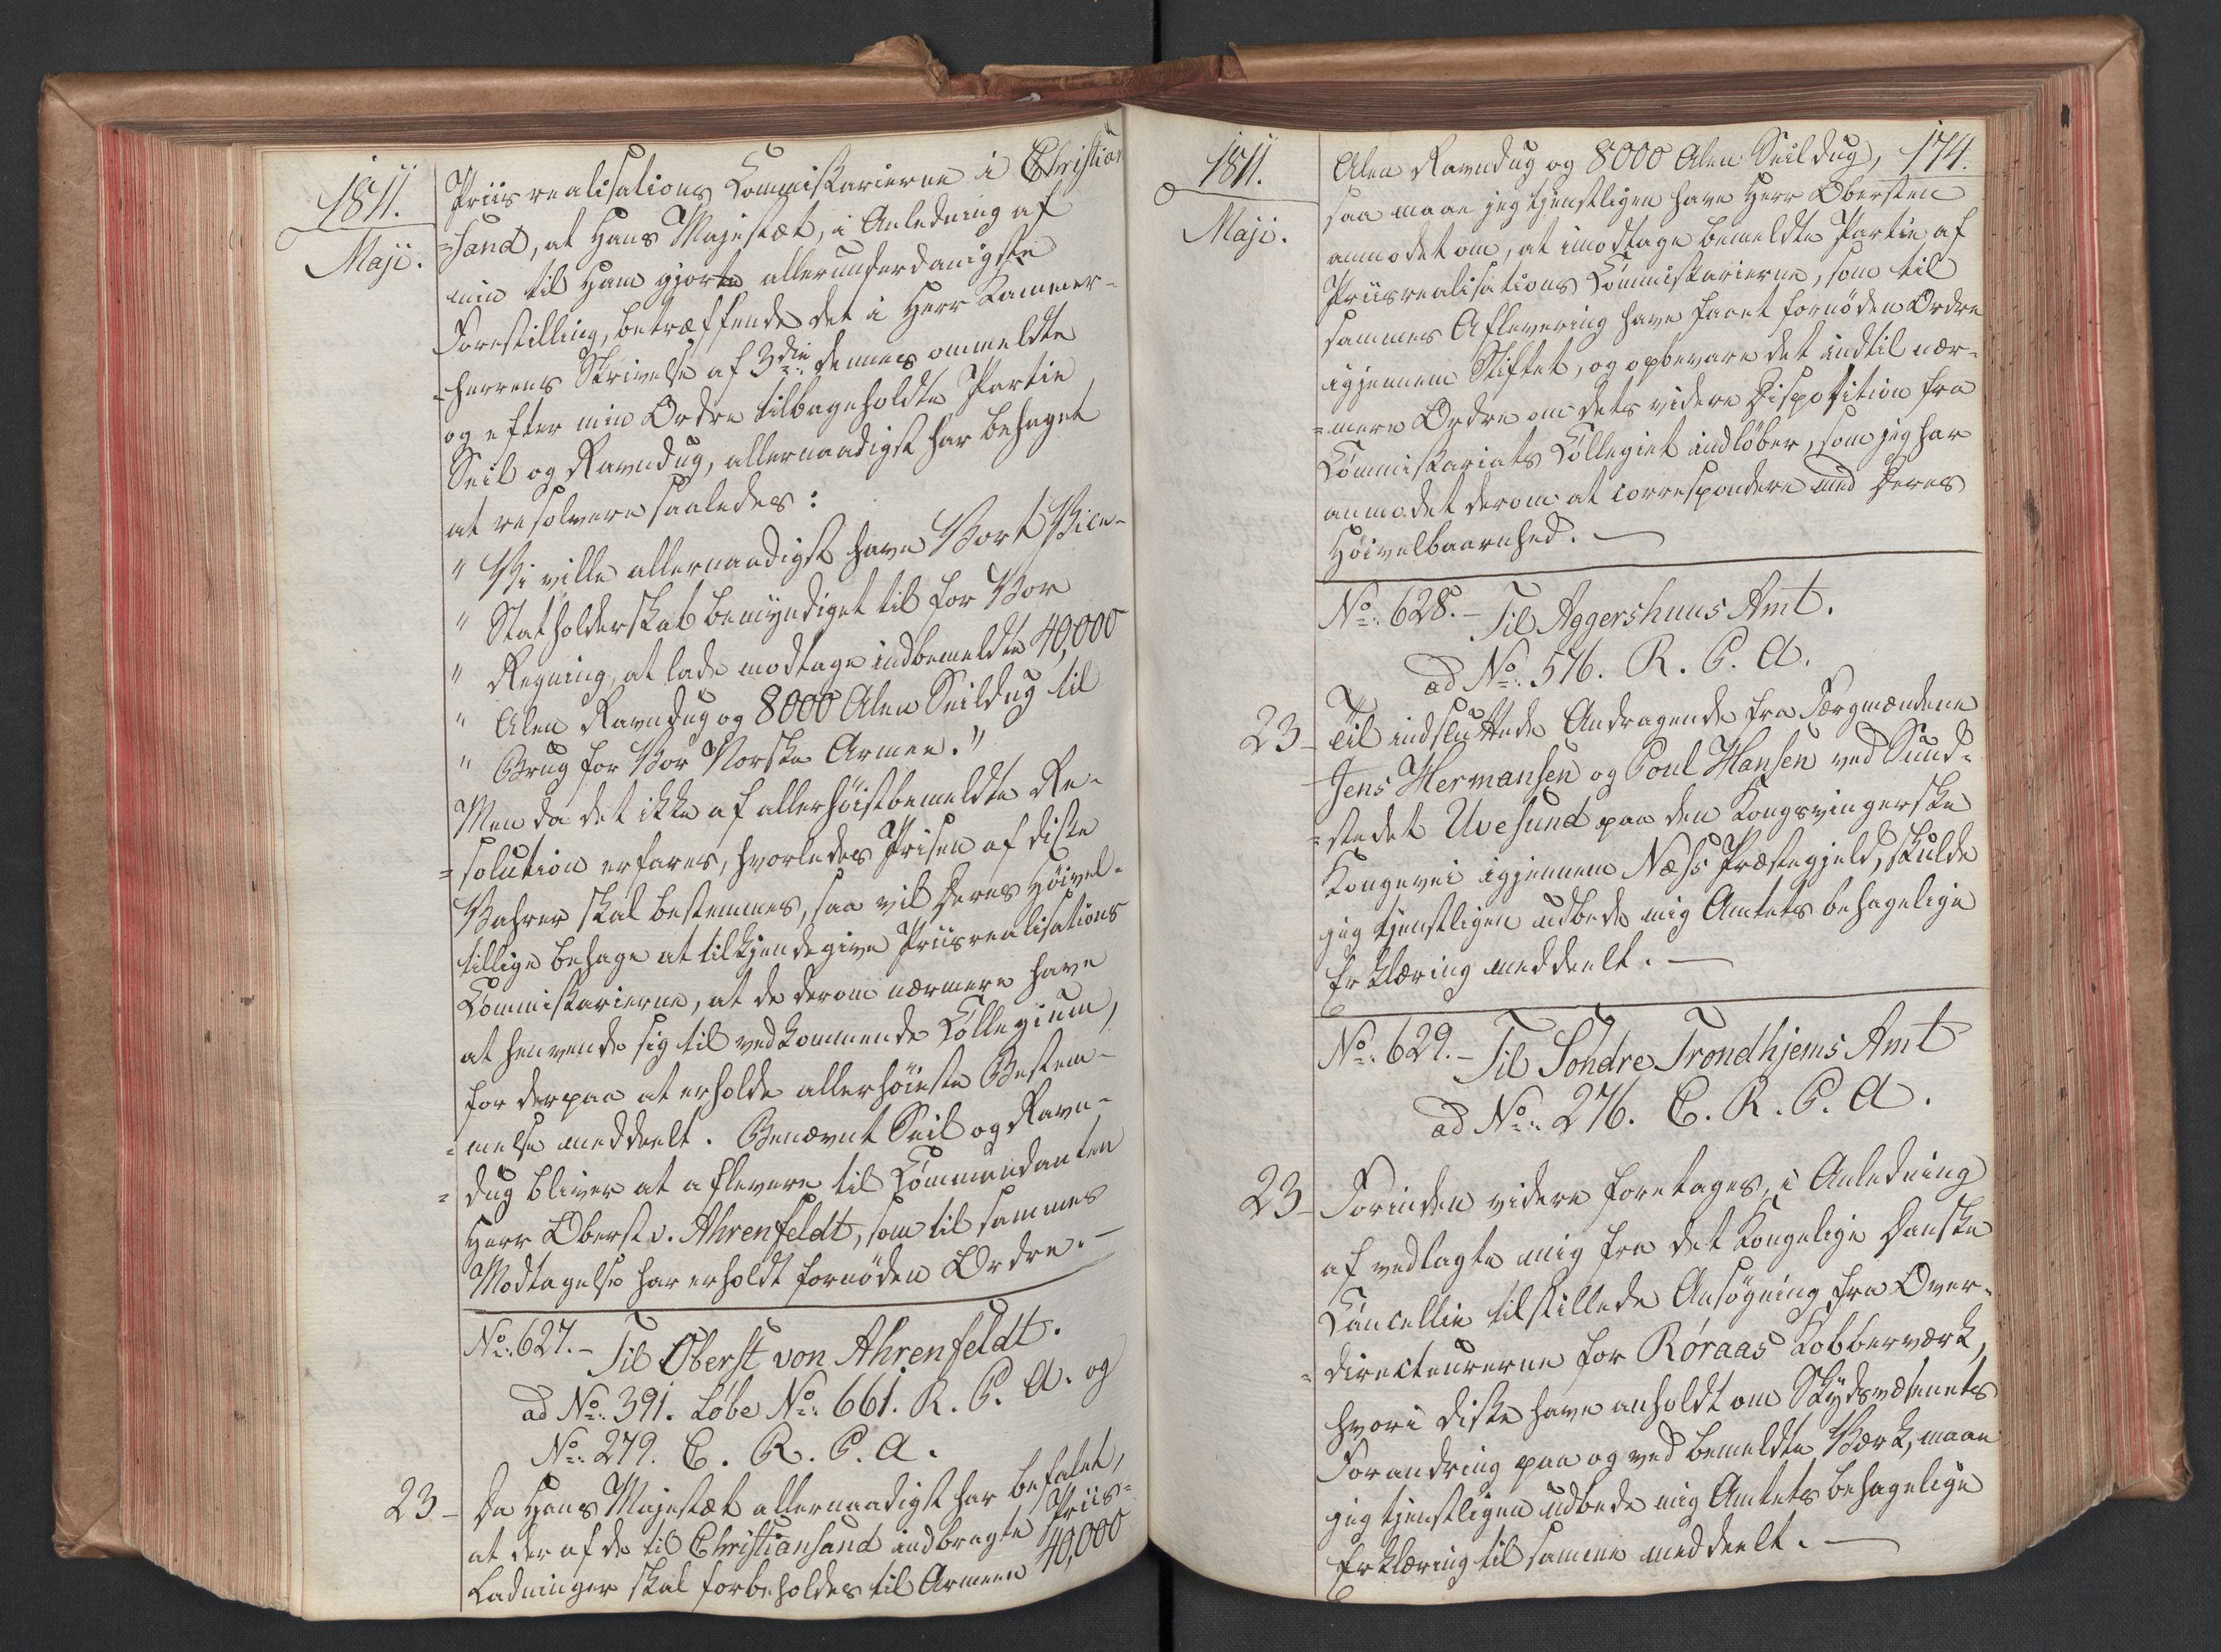 1811.
Maji.
Priisrealisations Commissarierne i Christian
=sand, at Hans Majestæt, i Anledning af
min til Ham gjorte allerunderdanigste
Forestilling, betræffende det i Herr Kammer-
=herrens Skrivelse af 3die dennes ommeldte
og efter min Ordre tilbageholdte Partie
Seil og Ravndug, allernaadigst har behaget
at resolvere saaledes:
" Vi ville allernaadigst have Vort Vice-
" Statholderskab bemyndiget til for Vor
" Regning, at lade modtage indbemeldte 40,000
" Alen Ravndug og 8000 Alen Seildug til
" Brug for Vor Norske Armee."
Men da det ikke af allerhøistbemeldte Re-
=solution erfares, hvorledes Prisen af disse
Vahrer skal bestemmes, saa vil Deres Høivel-
tillige behage at tilkjendegive Priisrealisations
Commissarierne, at de derom nærmere have
at henvende sig til vedkommende Collegium,
for derpaa at erholde allerhøieste Bestem-
=melse meddeelt. Benævnt Seil og Ravn-
=dug bliver at aflevere til Commandanten
Herr Oberst v. Ahrenfeldt, som til sammes
Modtagelse har erholdt fornøden Ordre.-
No. 627.- Til Oberst von Ahrenfeldt.
ad No. 391. Løbe No. 661. R. P. A. og
No. 279. C. R. P. A.
23- Da Hans Majestæt allernaadigst har befalet,
at der af de til Christiansand indbragte Priis-
Ladninger skal forbeholdes til Armeen 40,000
1811.
Maji.
174.
Alen Ravndug og 8000 Alen Seildug,
saa maae jeg tjenstligen have Herr Obersten
anmodet om, at imodtage bemeldte Partie af
Priisrealisations Commissarierne, som til
sammes Aflevering have faaet fornøden Ordre
igjennem Stiftet, og opbevare det indtil nær-
=mere Ordre om dets videre Disposition fra
Commissariats Collegiet indløber, som jeg har
anmodet derom at correspondere med Deres
Høivelbaarnhed.-
No. 628.- Til Aggershuus Amt.
ad No. 576. R. P. A.
23- Til indsluttede Andragende fra Færgmændene
Jens Hermansen og Poul Hansen ved Sund-
=stedet Uvesund paa den Kongsvingerske
Kongevei igjennem Næss Præstegjeld, skulde
jeg tjenstligen udbede mig Amtets behagelige
Erklæring meddeelt.-
No. 629.- Til Søndre Trondhjems Amt
ad No. 276. C. R. P. A.
23- Forinden videre foretages, i Anledning
af vedlagte mig fra det Kongelige Danske
Cancellie tilstillede Ansøgning fra Over-
=directeurerne for Røraas Kobberværk,
hvori disse have anholdt om Skydsvæsenets
Forandring paa og ved bemeldte Værk, maae
jeg tjenstligen udbede mig Amtets behagelige
Erklæring til samme meddeelt.-